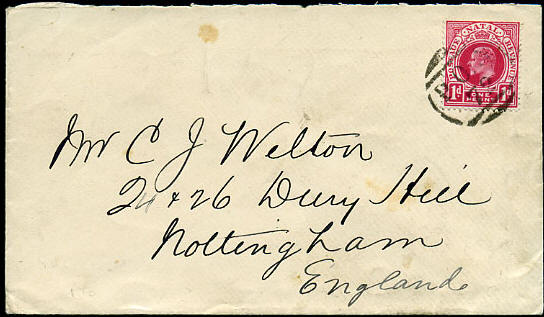 POSTAGE NATAL REVENUE
1d ONE PENNY 1d
Mr C J Welton
24 & 26 Dury Hill
Nottingham
England